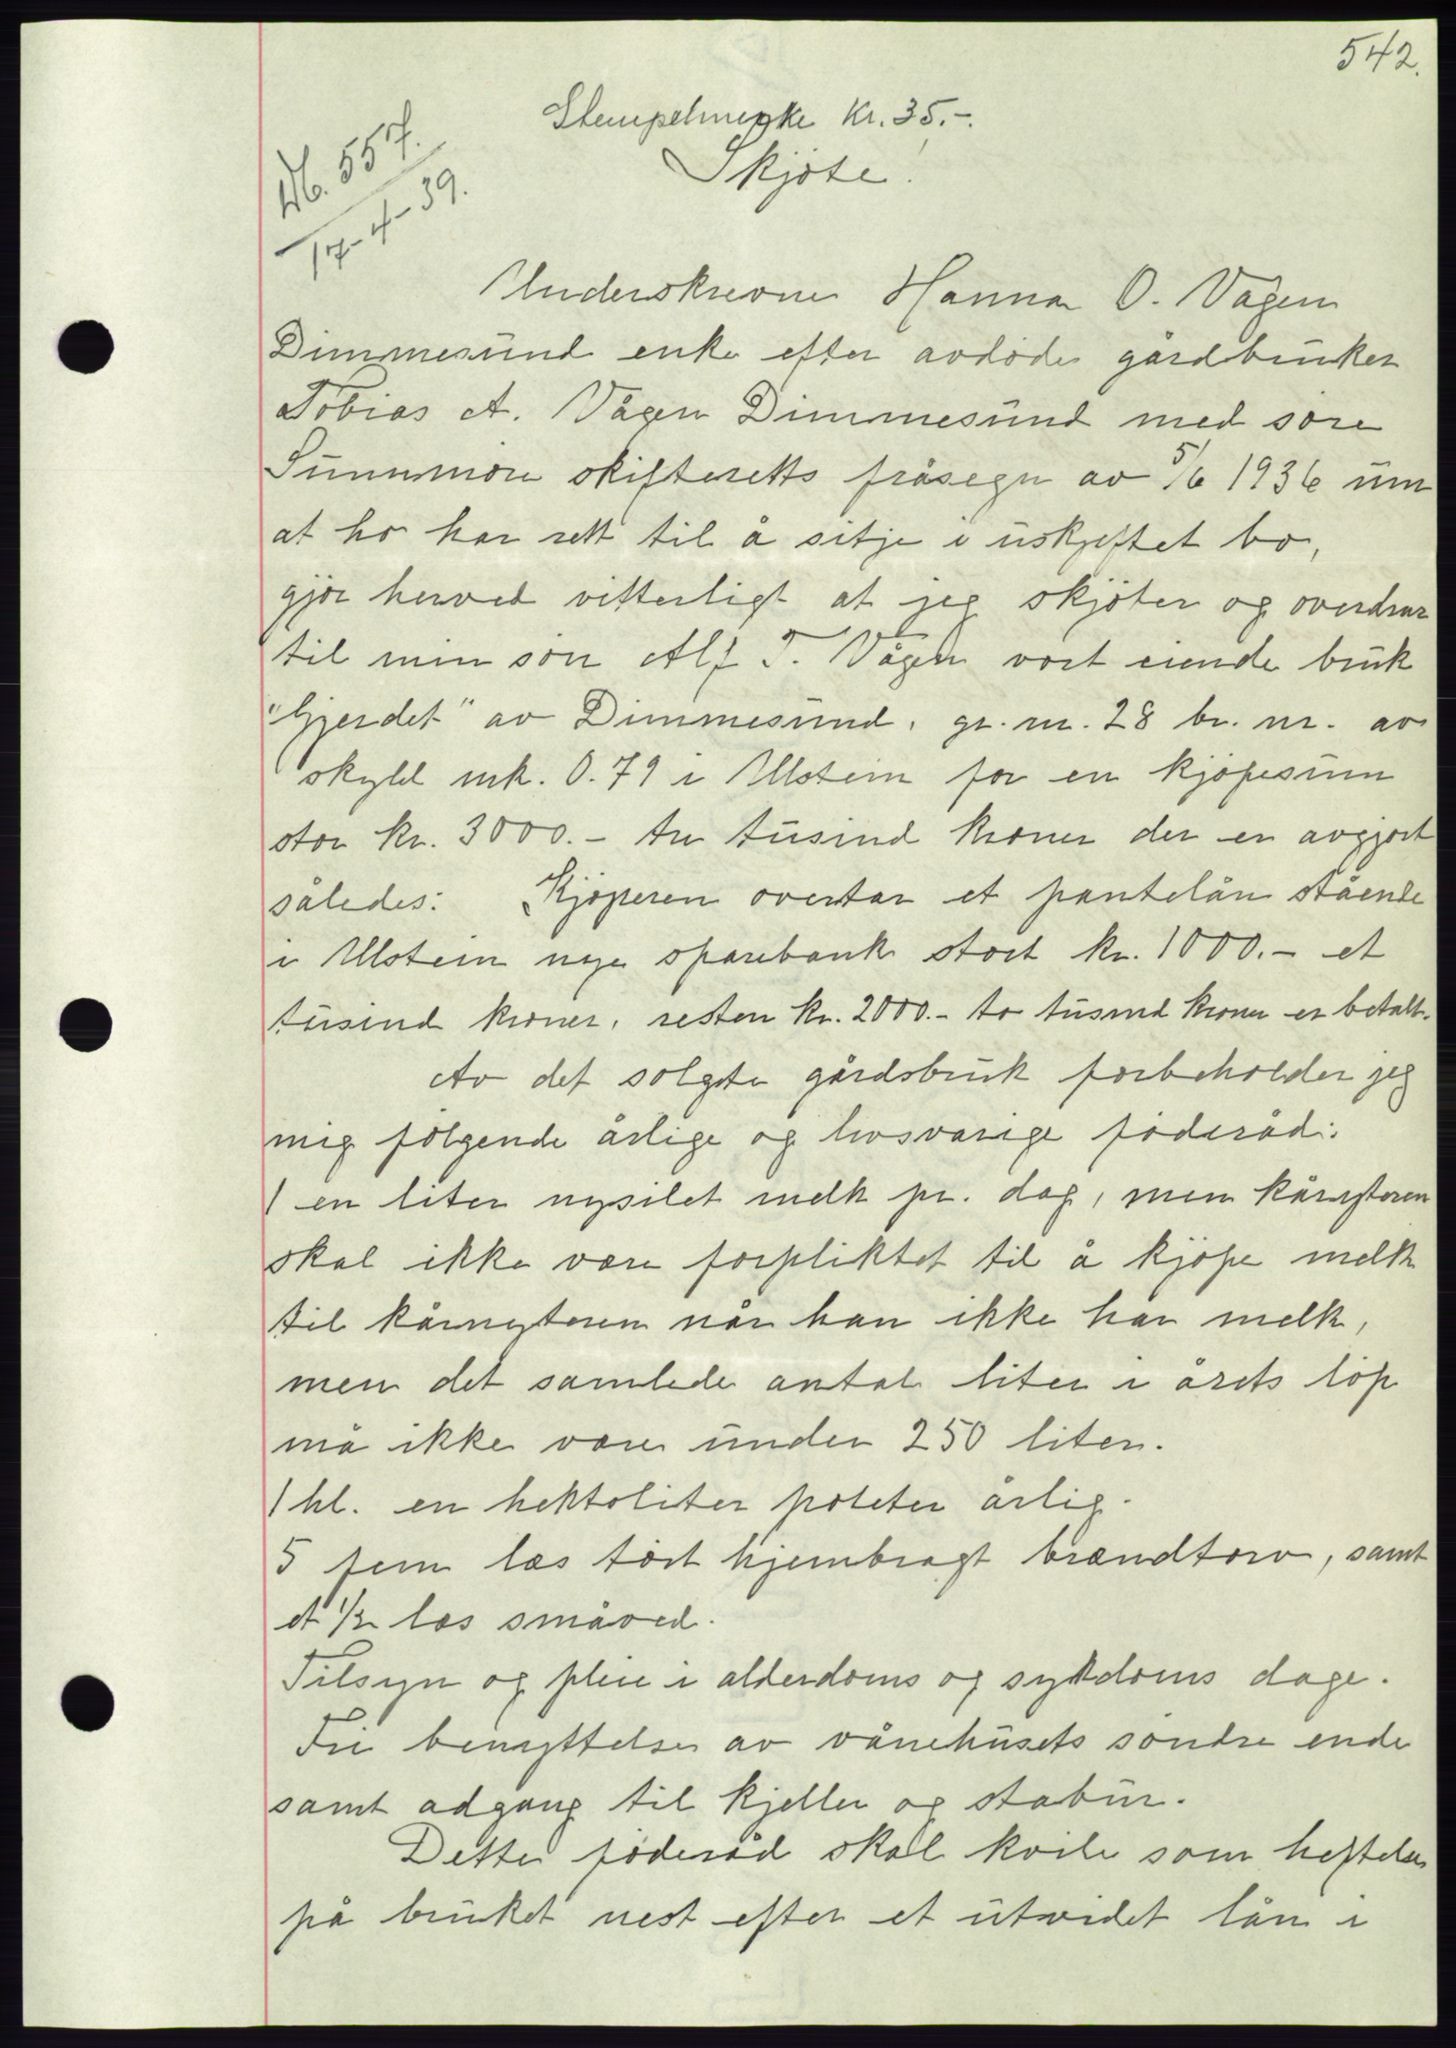 542.
Stempelmerke kr. 35.-.
Skjöte!
Nb. 557.
17-4-39.
Underskrevne Hanna O. Vågen
Dimmesund enke efter avdöde gårdbruker
Tobias A. Vågen Dimmesund med söre
Sunnmöre skifteretts fråsegn av 5/6 1936 um
at ho har rett til å sitje i uskjiftet bo,
gjör herved vitterligt at jeg skjöter og overdrar
til min sön Alf T. Vågen vort eiende bruk
"Gjerdet" av Dimmesund, gr. nr. 28 br. nr. av
skyld mk. 0.79 i Ulstein for en kjöpesum
stor kr. 3000.- tre tusind kroner der er avgjort
således: Kjöperen overtar et pantelån stående
i Ulstein nye sparebank stort kr. 1000.- et
tusind kroner, resten kr. 2000.- to tusind kroner er betalt.
Av det solgte gårdsbruk forbeholder jeg
mig fölgende årlige og livsvarige föderåd:
1 en liter nysilet melk pr. dag, men kåryteren
skal ikke være forpliktet til å kjöpe melk
til kårnyteren når han ikke har melk,
men det samlede antal liter i årets löp
må ikke være under 250 liter.
1 hl. en hektoliter poteter årlig.
5 fem læs tört hjembragt brændtorv, samt
et 1/2 læs småved.
Tilsyn og pleie i alderdoms og sykdoms dage.
Fri benyttelse av vånehusets söndre ende
samt adgang til kjeller og stabur.
Dette föderåd skal kvile som heftelse
på bruket nest efter et utvidet lån i